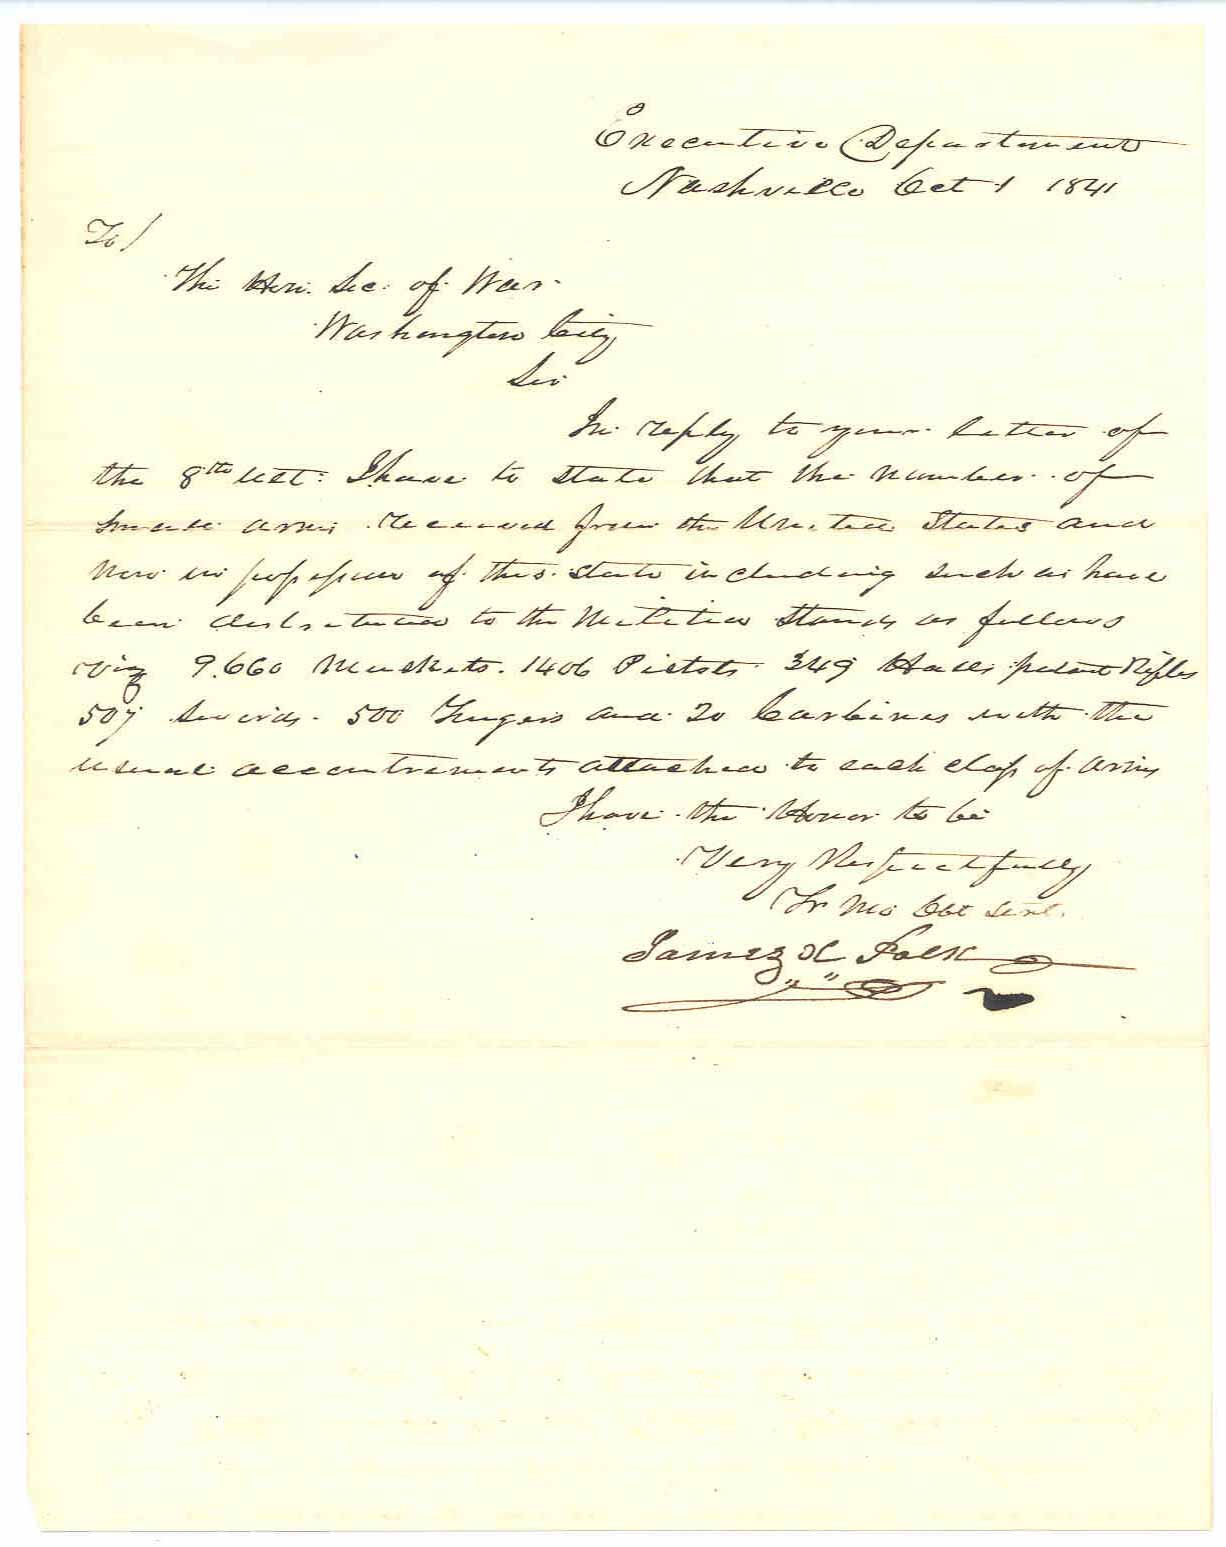 Executive Department
Nashville Oct 1 1841
To/
The Hon. Sec. of War.
Washington City
Sir
In reply to your letter of
the 8th ult: I have to state that the number of
small arms received from the United States and
now in possession of this state including such as have
been distributed to the Militia stands as follows
viz 9.660 Muskets. 1406 Pistols. 349 Halls patent Rifles
507 Swords. 500 and 20 Carbines with the
usual accoutrements attached to each class of arms
I have the Honor to be
Very Respectfully
Yr Mo Obt Servt.
James K Polk